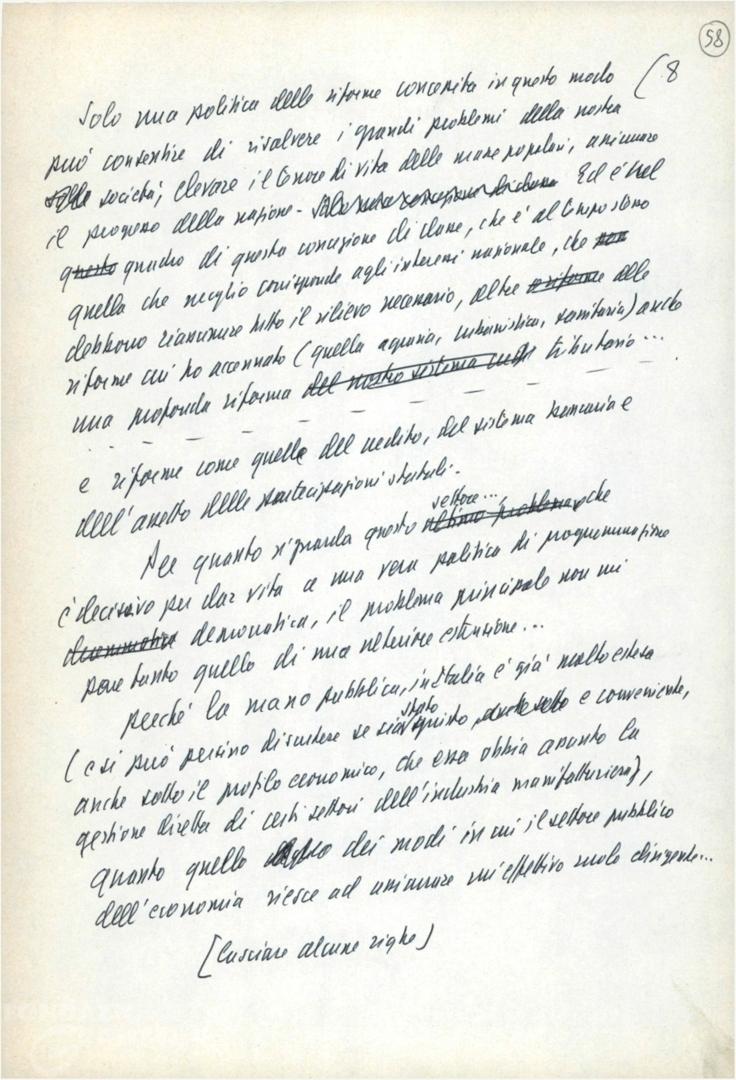 58
Solo una politica delle riforme concepita in questo modo (8
può consentire di risolvere i grandi problemi della nostra
società, elevare il tenore di vita delle masse popolari, assicurare
il progresso della nazione. Ed è nel
questo quadro di questa concezione di classe, che è al tempo stesso
quella che meglio corrisponde agli interessi nazionale, che non
debbono riassumere tutto il rilievo necessario, oltre a riforme alle
riforme cui ho accennato (quella agraria, urbanistica, sanitaria) anche
una profonda riforma del nostro sistema tributario...
e riforme come quella del credito, del sistema bancario e
dell'assetto delle partecipazioni statali.
settore...,
Per quanto riguarda questo ultimo problema, che
è decisivo per dar vita a una vera politica di programmazione
democratica, il problema principale non mi
pare tanto quello di una ulteriore estensione...
perché la mano pubblica, in Italia è già molto estesa
stato
(e si può persino discutere se sia giusto, e conveniente,
anche sotto il profilo economico, che essa abbia assunto la
gestione diretta di certi settori dell'industria manifatturiera),
quanto quello dei modi in cui il settore pubblico
dell'economia riesce ad assicurare un effettivo ruolo dirigente...
[lasciare alcune righe)